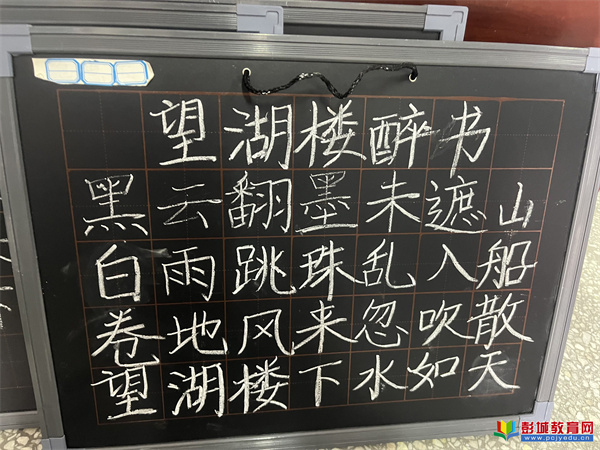 望湖楼醉书
黑云翻墨未遮山
白雨跳珠乱入船
卷地风来忽吹散
望湖楼下水如天
彭城教育网
www.pcjyedu.cn